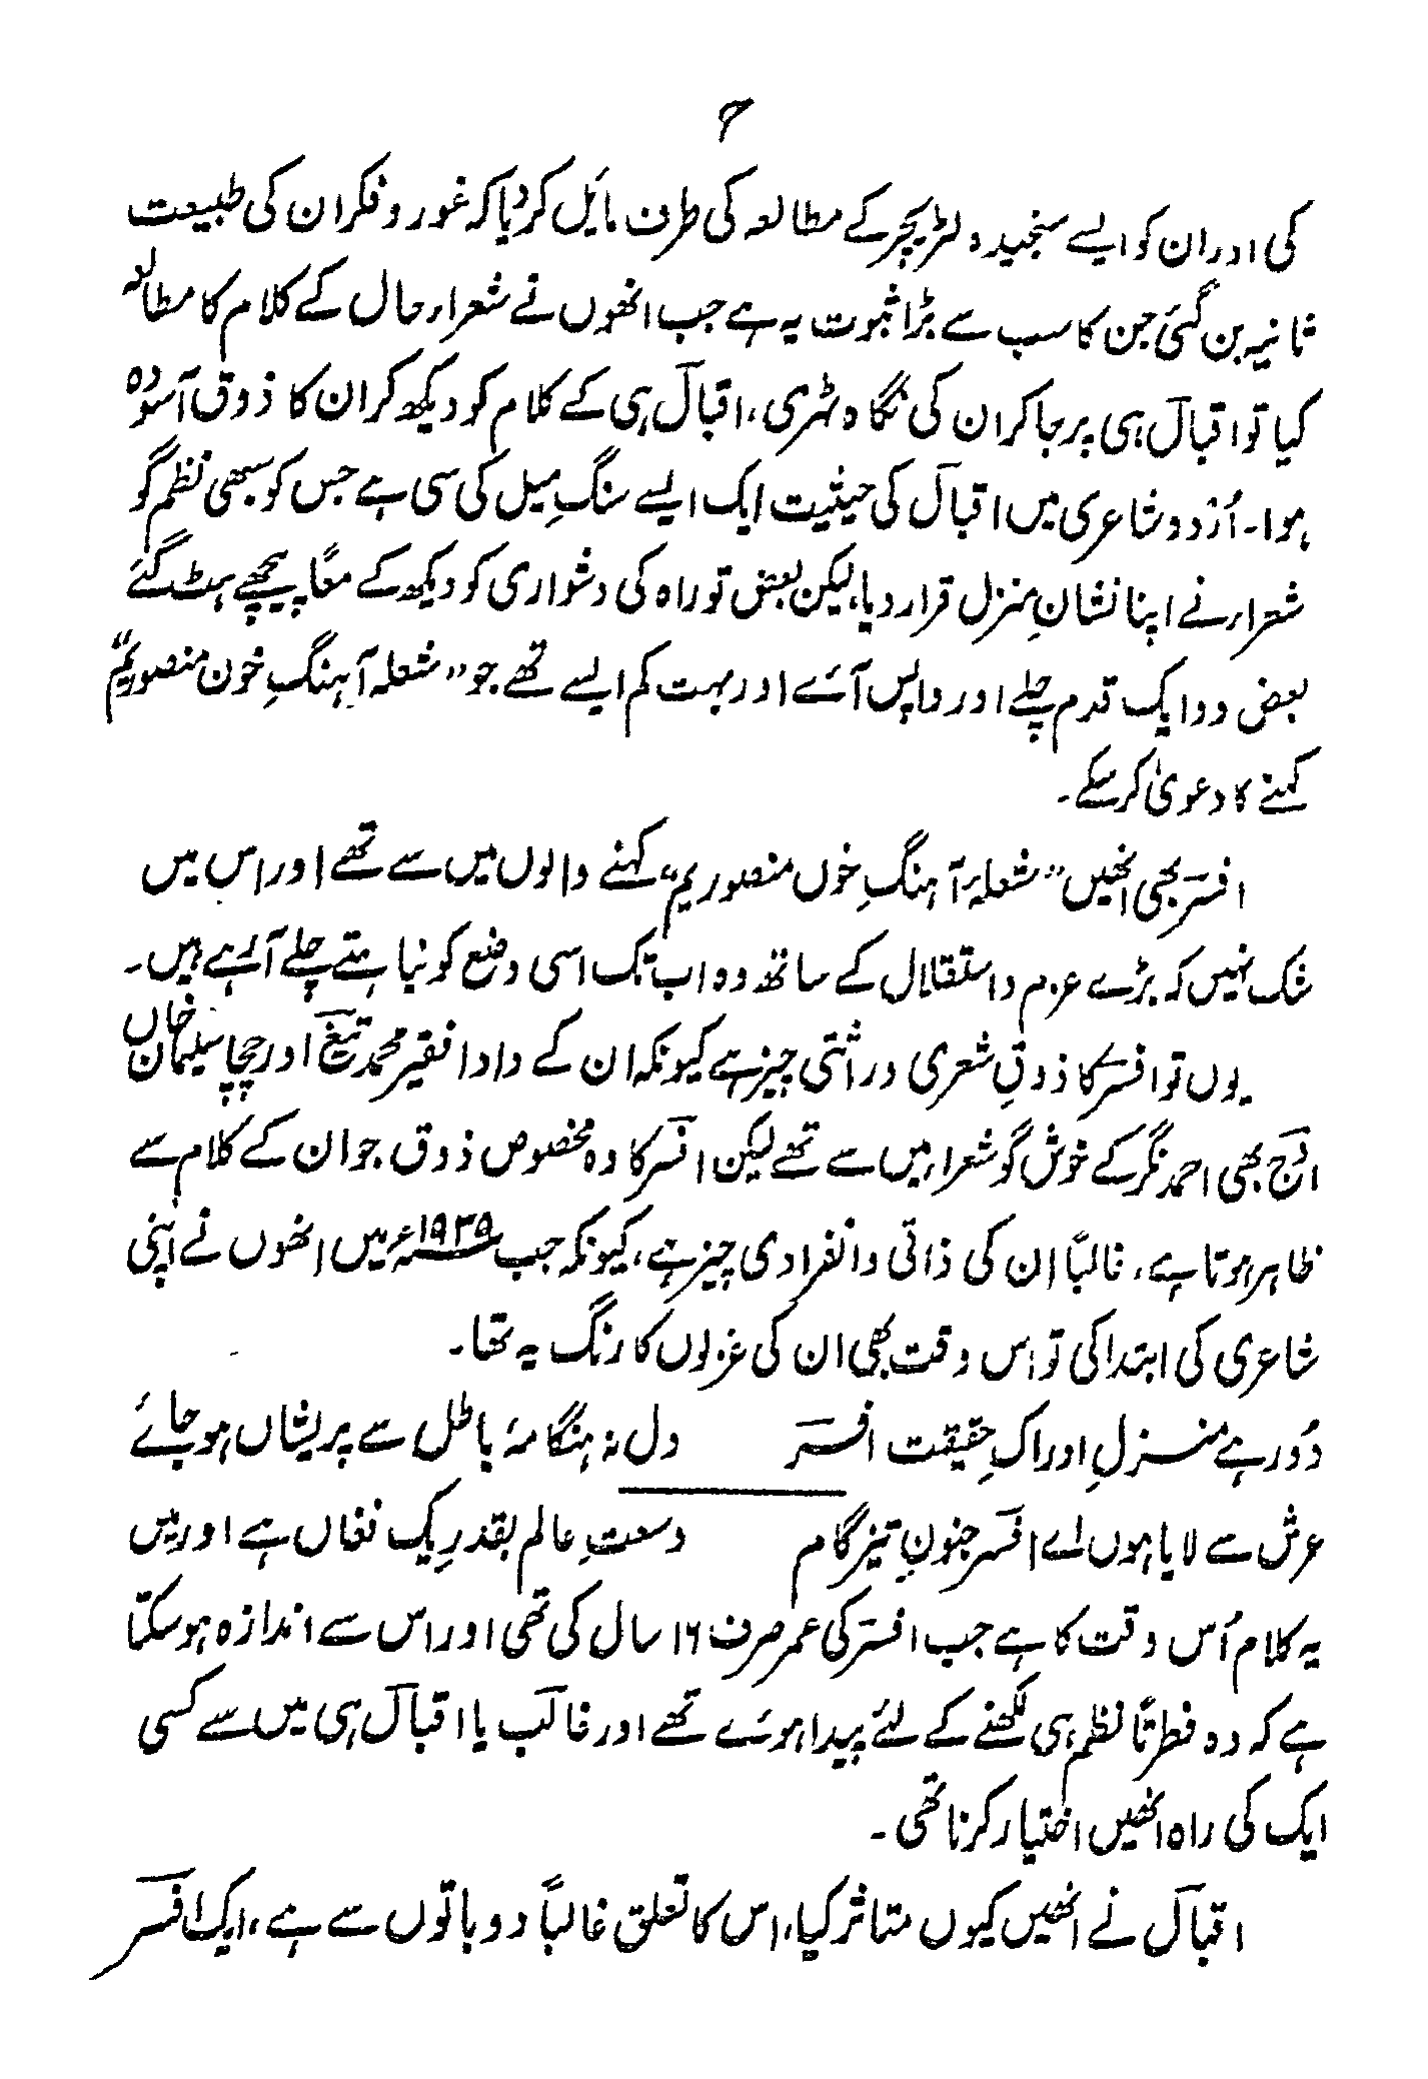 کی اور ان کو ایسے سنجیدہ لٹریچر کے مطالعہ کی طرف مایٔل کر دیا کہ غور و فکر ان کی طبیعت
ثانیہ بن گئی جن کا سب سے بڑا ثبوت یہ ہے جب انھوں نے شعراء حال کے کلام کا مطالعہ
کیا تو اقبالؔ ہی پر جا کر ان کی نگاہ ٹہری، اقبالؔ ہی کے کلام کو دیکھ کر ان کا ذوق آسودہ
ہوا۔ اُردو شاعری میں اقبالؔ کی حیثیت ایک ایسے سنگِ میل کی سی ہے جس کو سبھی نظم گو
شعراء نے اپنا نشانِ منزل قرار دیا، لیکن بعض تو راہ کی دشواری کو دیکھ کے معاً پیچھے ہٹ گئے
بعض دو ایک قدم چلے اور واپس آئے اور بہت کم ایسے تھے جو ”شعلہ آہنگِ خون منصوریم“
کہنے کا دعویٰ کر سکے۔
افسرؔ بھی انھیں ”شعلۂ آہنگِ خوں منصوریم“ کہنے والوں میں سے تھے اور اس میں
شک نہیں کہ بڑے عزم و استقلال کے ساتھ وہ اب تک اسی وضع کو نباہتے چلے آئے ہیں۔
یوں تو افسرؔ کا ذوقِ شعری وراثتی چیز ہے کیونکہ ان کے دادا فقیر محمد تیغؔ اور چچا سلیمان خاں
اوجؔ بھی احمد نگر کے خوش گو شعراء میں سے تھے لیکن افسرؔ کا وہ مخصوص ذوق جو ان کے کلام سے
ظاہر ہوتا ہے، غالباً ان کی ذاتی و انفرادی چیز ہے، کیونکہ جب ۱۹۳۵ء میں انھوں نے اپنی
شاعری کی ابتدا کی تو اس وقت بھی ان کی غزلوں کا رنگ یہ تھا۔
دُور ہے منزلِ ادراکِ حقیقت افسرؔ دل نہ ہنگامۂ باطل سے پریشاں ہو جائے
عرش سے لایا ہوں اے افسرؔ جنونِ تیز گام وسعتِ عالم بقدرِ یک فغاں ہے اور میں
یہ کلام اُس وقت کا ہے جب افسرؔ کی عمر صرف ۱۶ سال کی تھی اور اس سے اندازہ ہو سکتا
ہے کہ وہ فطرتاً نظم ہی لکھنے کے لئے پیدا ہوئے تھے اور غالبؔ یا اقبالؔ ہی میں سے کسی
ایک کی راہ انھیں اختیار کرنا تھی۔
اقبالؔ نے انھیں کیوں متاثر کیا، اس کا تعلق غالباً دو باتوں سے ہے، ایک افسرؔ